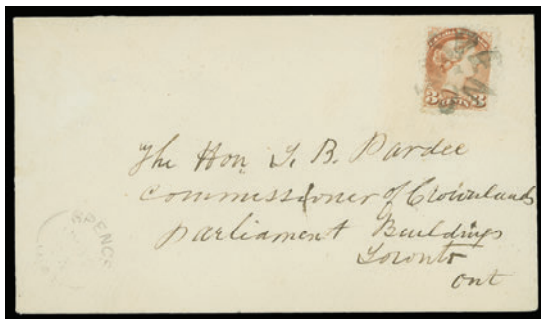 3 CENTS 3
The Hon T. B. Pardee
Commissioner of Crownlands
Parliament Buildings
Toronto
Ont
SPENCE